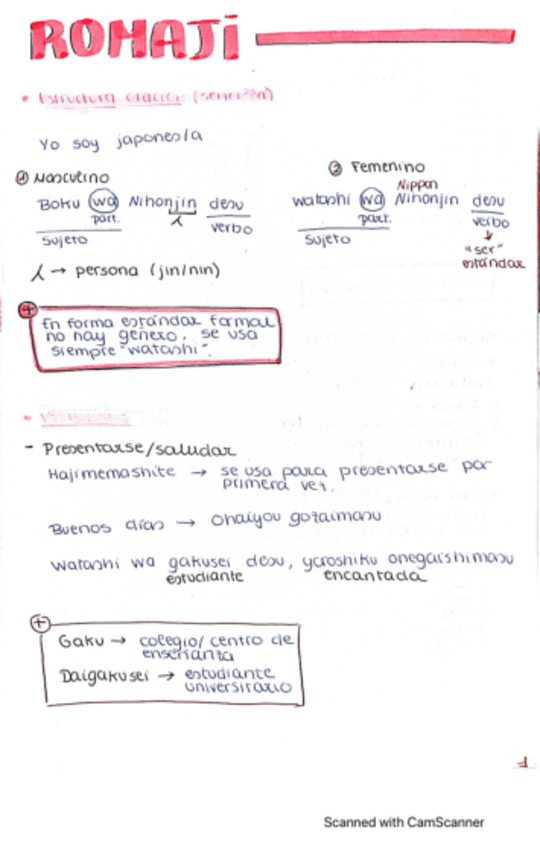 ROMAJI
• Estructura oración (sencilla)
Yo soy japones/a
① Masculino
Boku wa Nihonjin desu
part. 人 verbo
sujeto
② Femenino
Nippon
watashi wa Nihonjin desu
part. verbo
sujeto
"ser"
estándar
人 → persona (jin/nin)
+
En forma estándar formal
no hay genero, se usa
siempre "watashi".
- Presentarse/saludar
Hajimemashite → se usa para presentarse por
primera vez.
Buenos días → Ohaiyou gozaimasu
Watashi wa gakusei desu, yoroshiku onegaishimasu
estudiante encantada
+
Gaku → colegio/centro de
enseñanza
Daigakusei → estudiante
universitario
1
Scanned with CamScanner